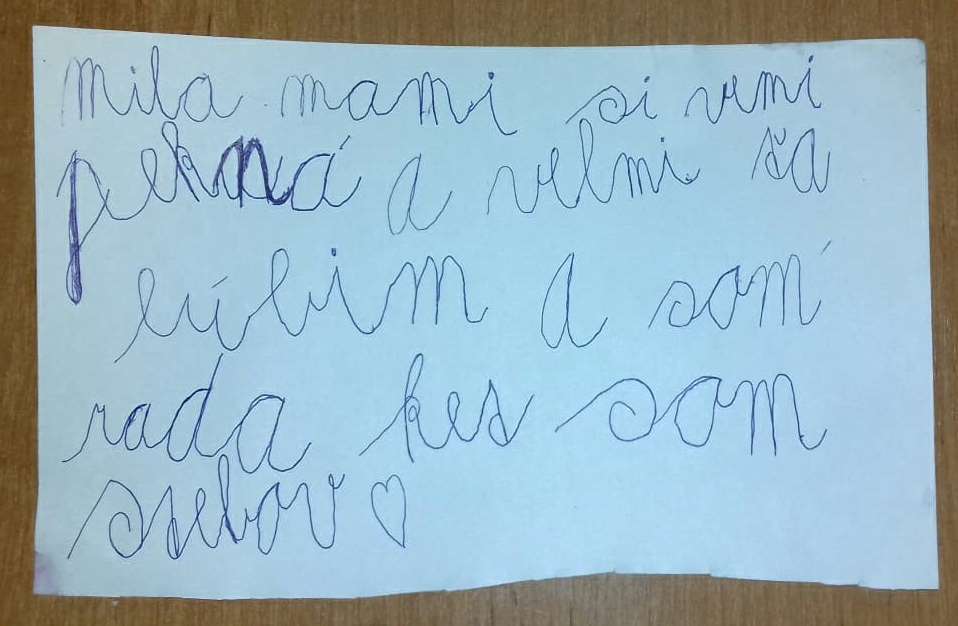 mila mami si vmi
pekná a velmi ťa
ľúbim a som
rada kes som
stebov ♡